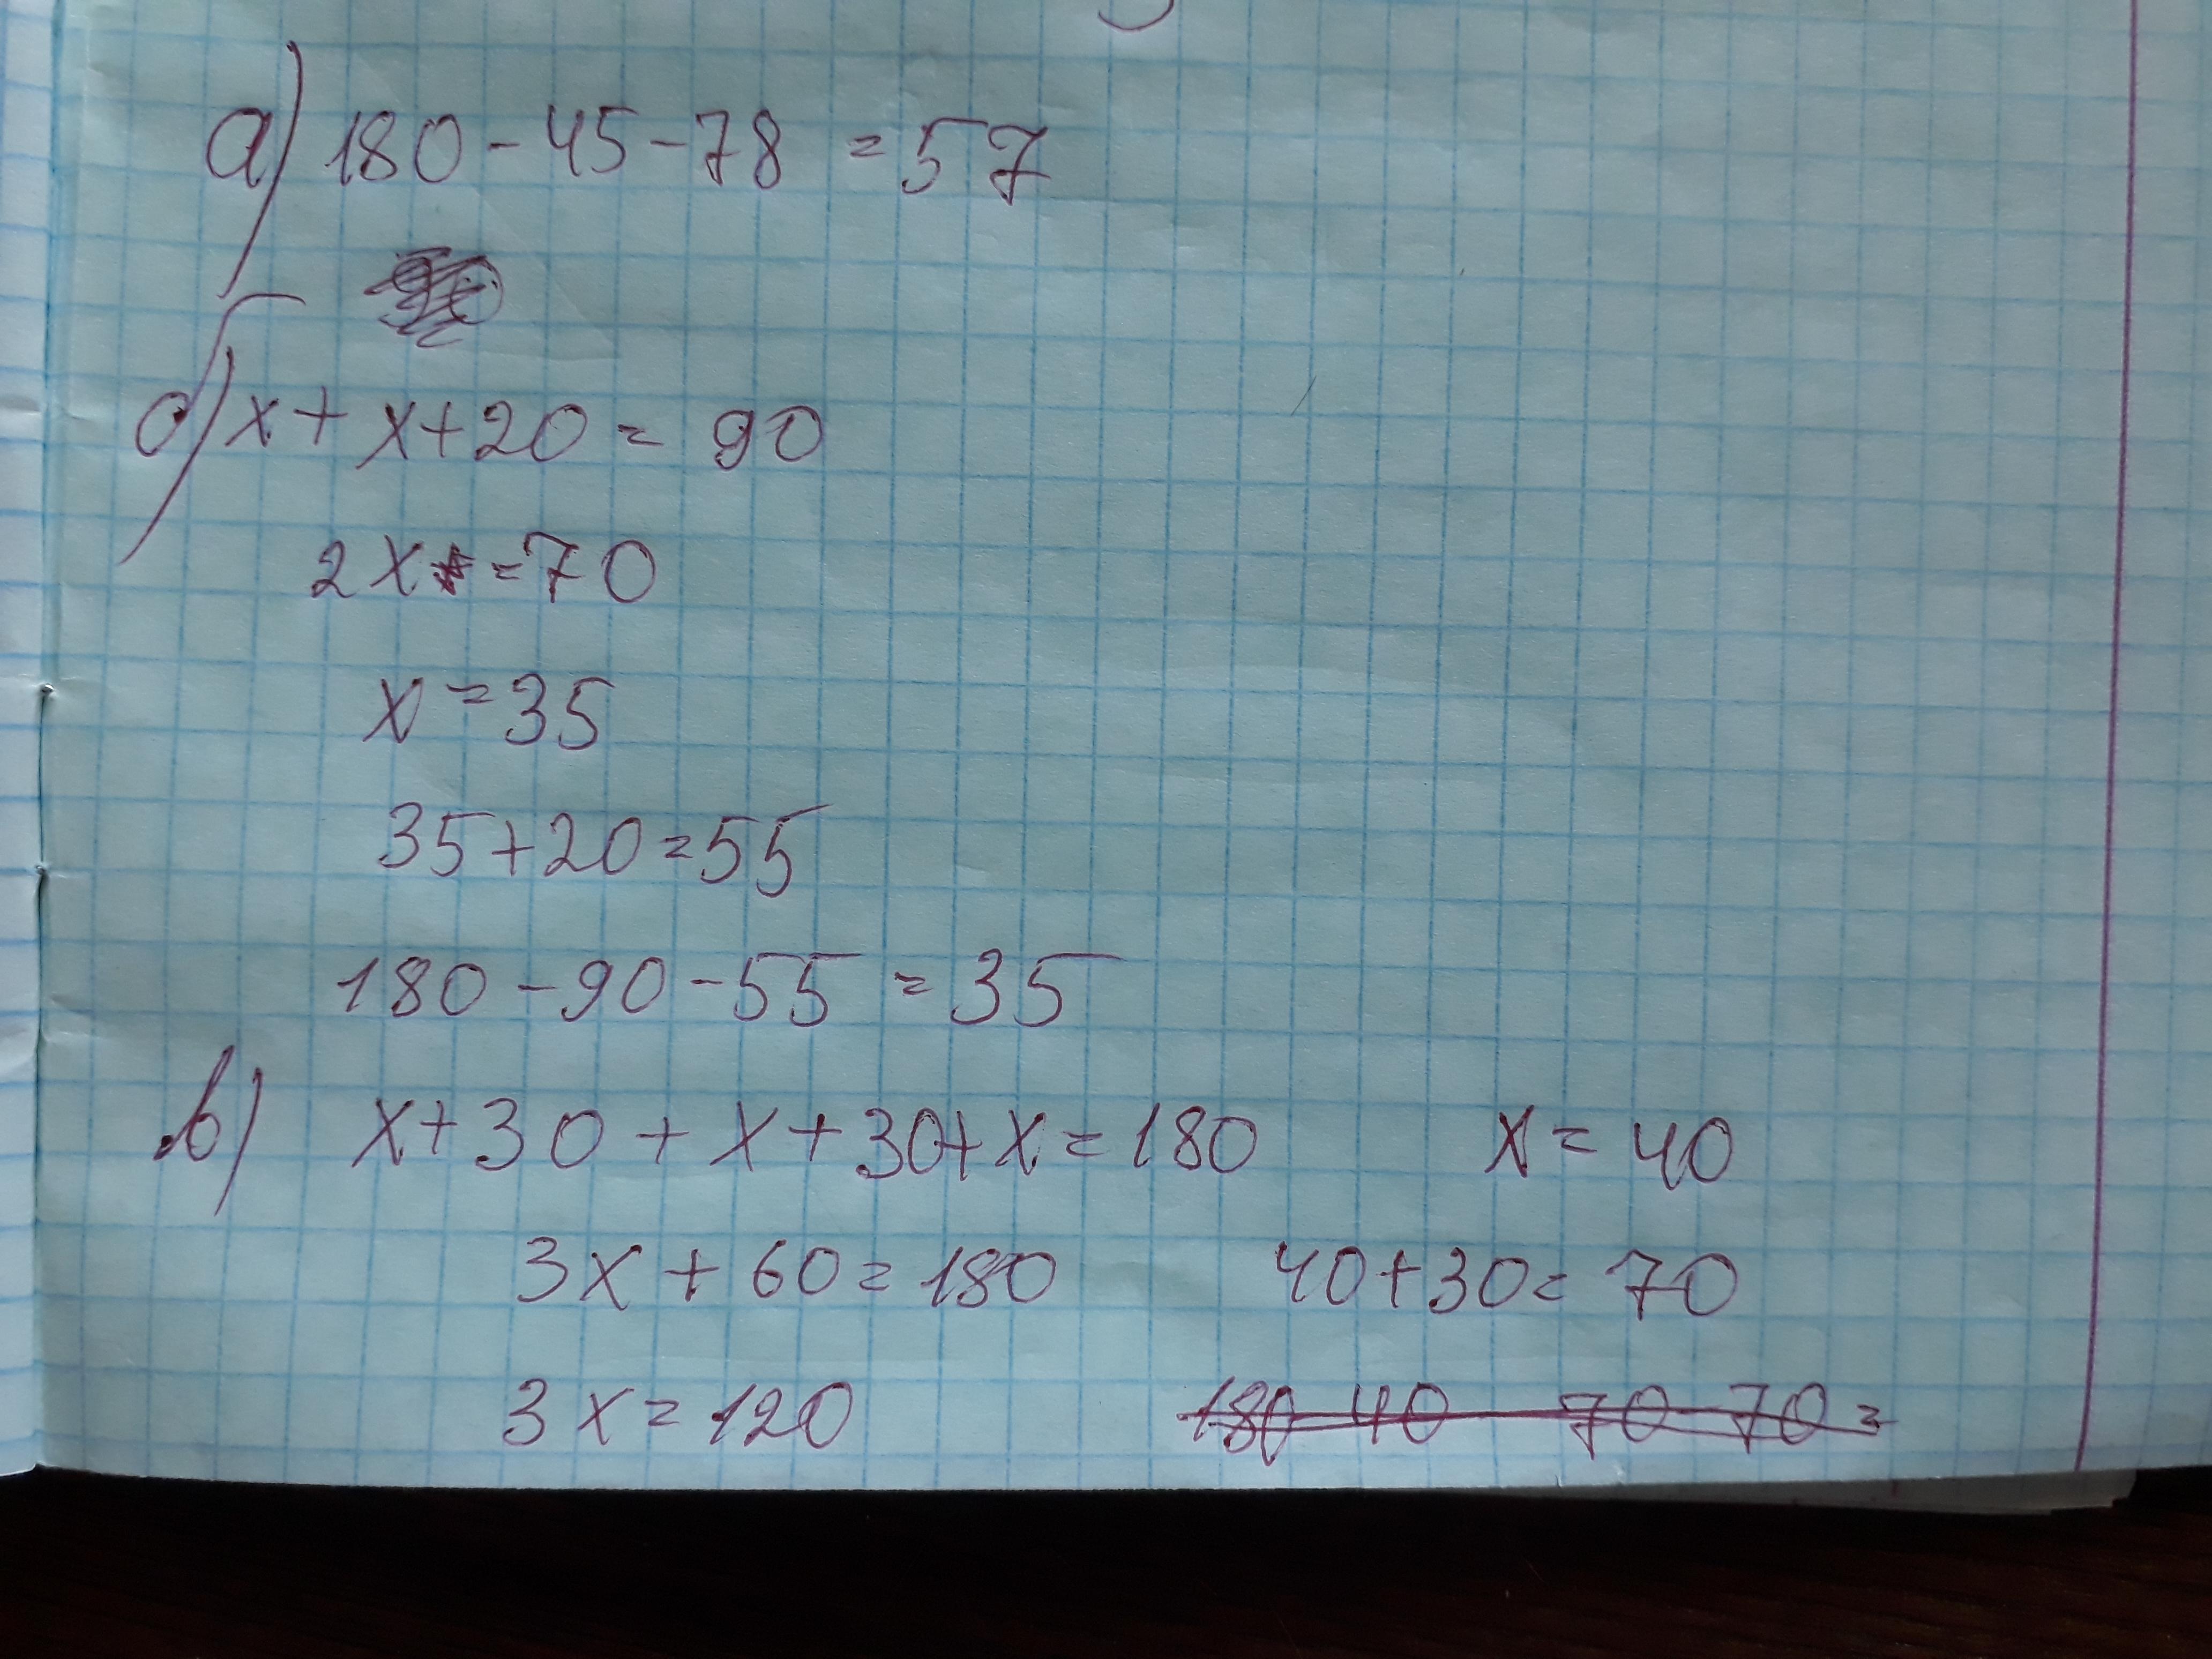 а) 180 - 45 - 78 = 57
б) x + x + 20 = 90
2x = 70
x = 35
35 + 20 = 55
180 - 90 - 55 = 35
в) x + 30 + x + 30 + x = 180
3x + 60 = 180
3x = 120
x = 40
40 + 30 = 70
180 - 40 - 70 - 70 =